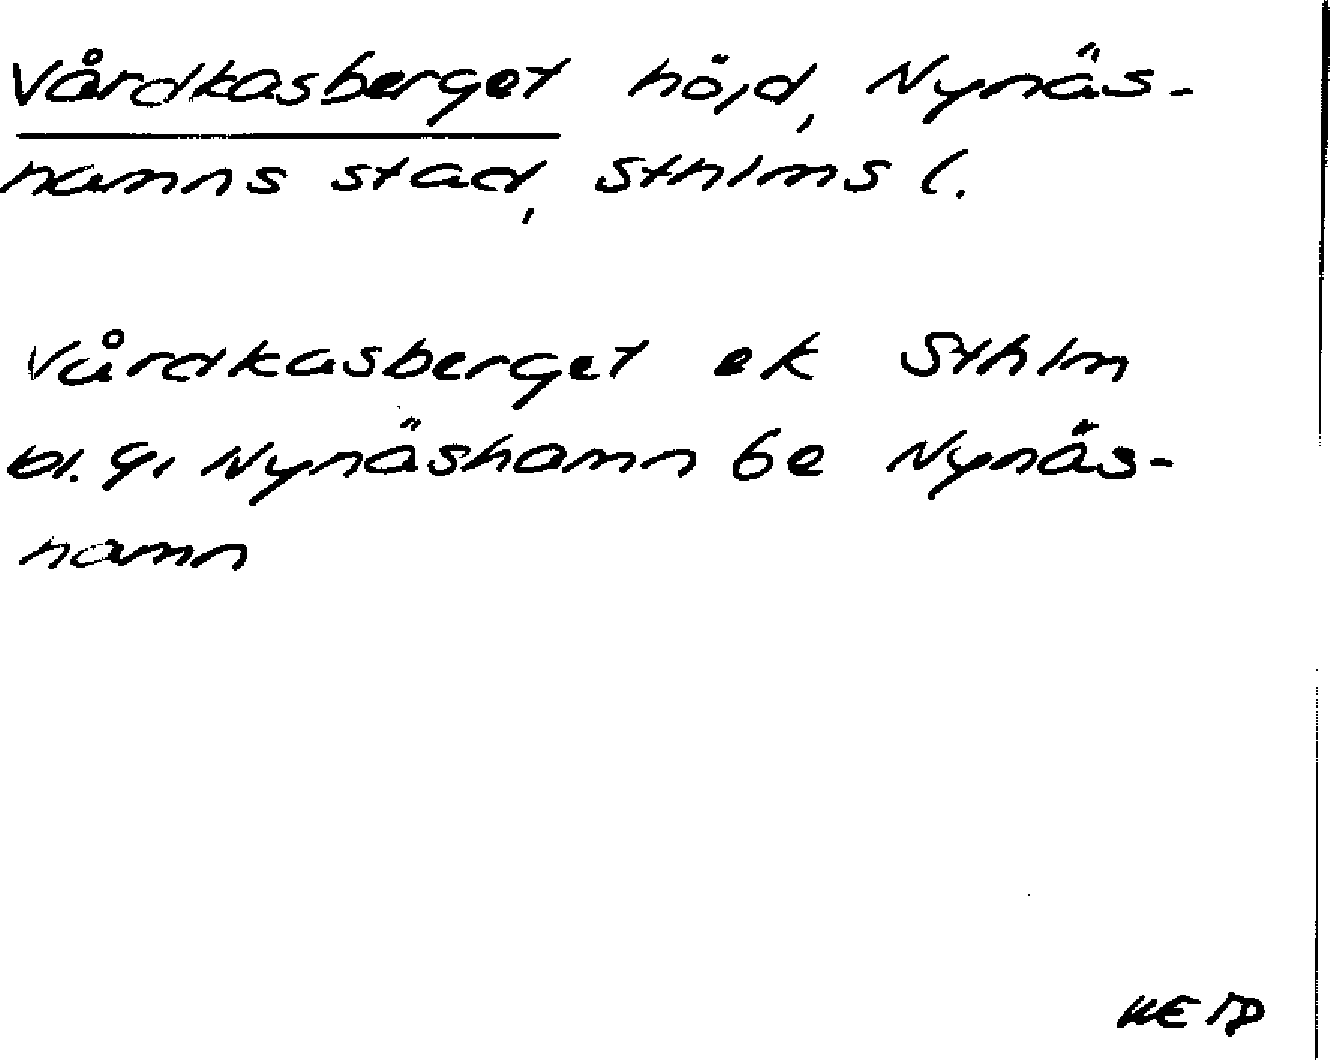 Vårdkasberget höjd, Nynäs-
hamns stad, Sthlms l.
Vårdkasberget ek Sthlm
bl. 9, Nynäshamn 6e Nynäs-
hamn